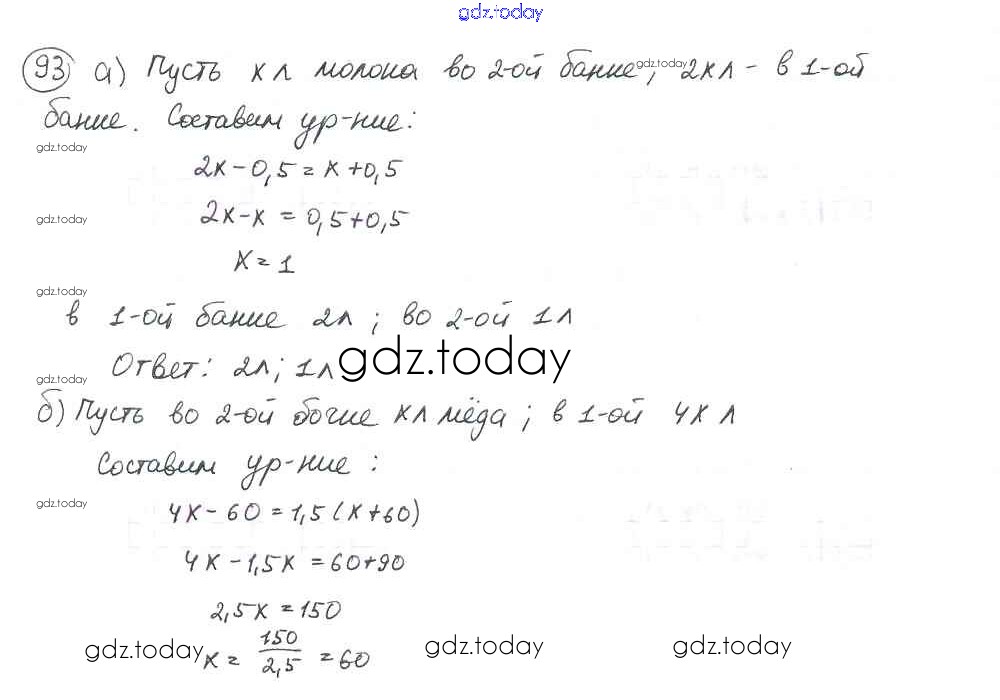 gdz.today
93 а) Пусть х л молока во 2-ой банке, gdz.today 2х л - в 1-ой
банке. Составим ур-ние:
gdz.today
2х - 0,5 = х + 0,5
gdz.today
2х - х = 0,5 + 0,5
х = 1
gdz.today
в 1-ой банке 2л ; во 2-ой 1л
Ответ: 2л; 1л gdz.today
gdz.today
б) Пусть во 2-ой бочке х л мёда ; в 1-ой 4х л
Составим ур-ние :
gdz.today
4х - 60 = 1,5 (х + 60)
4х - 1,5х = 60 + 90
2,5х = 150
gdz.today х = 150/2,5 = 60 gdz.today gdz.today